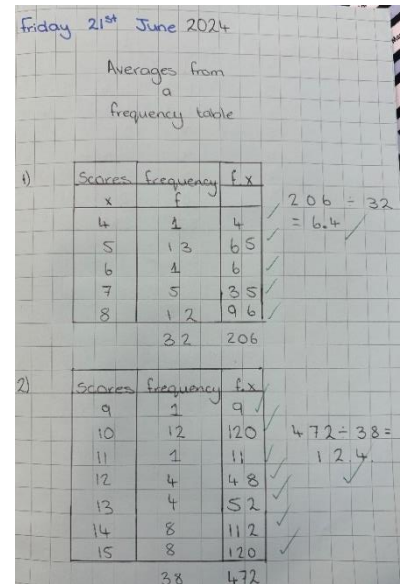 Friday 21st June 2024
Averages from
a
frequency table
1)
Scores frequency f.x
x f
4 1 4
5 13 65
6 1 6
7 5 35
8 12 96
32 206
206 ÷ 32
= 6.4
2)
Scores frequency f.x
9 1 9
10 12 120
11 1 11
12 4 48
13 4 52
14 8 112
15 8 120
38 472
472 ÷ 38 =
12.4